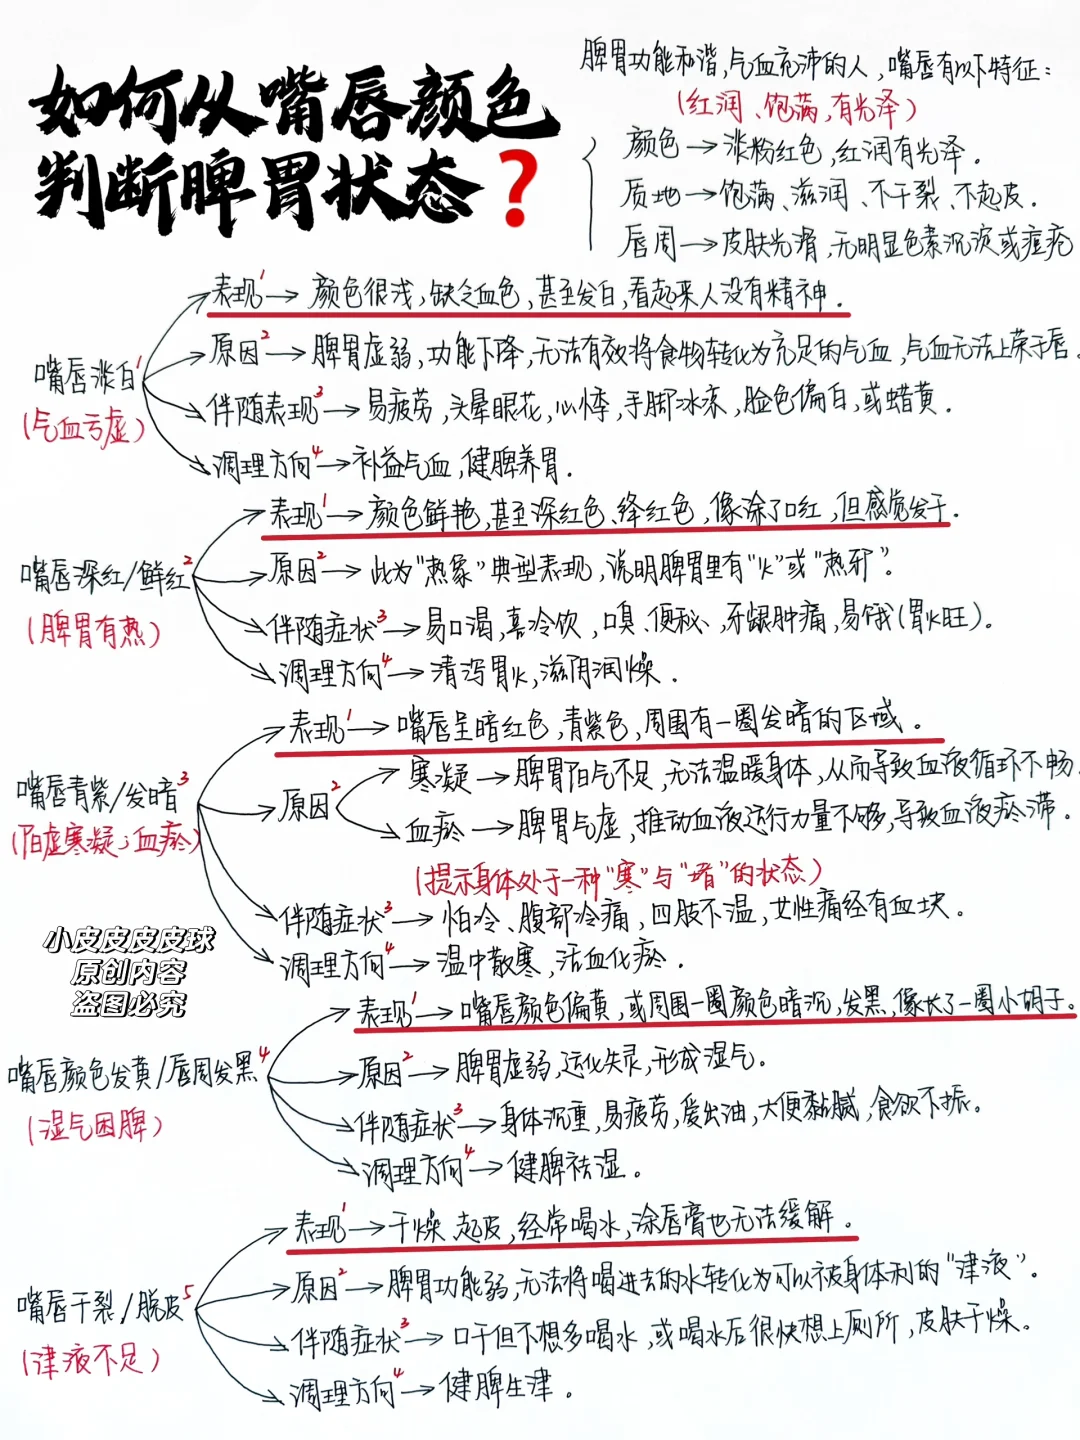 如何从嘴唇颜色
判断脾胃状态?
脾胃功能和谐,气血充沛的人,嘴唇有以下特征:
(红润、饱满,有光泽)
颜色→淡粉红色,红润有光泽.
质地→饱满、滋润、不干裂、不起皮.
唇周→皮肤光滑,无明显色素沉淀或痘疙
嘴唇淡白1
(气血亏虚)
表现1→颜色很浅,缺乏血色,甚至发白,看起来人没有精神.
原因2→脾胃虚弱,功能下降,无法有效将食物转化为充足的气血,气血无法上荣于唇.
伴随表现3→易疲劳,头晕眼花,心悸,手脚冰冻,脸色偏白,或蜡黄.
调理方向4→补益气血,健脾养胃.
嘴唇深红/鲜红2
(脾胃有热)
表现1→颜色鲜艳,甚至深红色、绛红色,像涂了口红,但感觉发干.
原因2→此为"热象"典型表现,说明脾胃里有"火"或"热邪".
伴随症状3→易口渴,喜冷饮,口臭、便秘、牙龈肿痛,易饿(胃火旺).
调理方向4→清泻胃火,滋阴润燥.
嘴唇青紫/发暗3
(阳虚寒凝;血瘀)
表现1→嘴唇呈暗红色,青紫色,周围有一圈发暗的区域.
原因2
寒凝→脾胃阳气不足,无法温暖身体,从而导致血液循环不畅.
血瘀→脾胃气虚,推动血液运行力量不够,导致血液瘀滞.
(提示身体处于一种"寒"与"堵"的状态)
伴随症状3→怕冷、腹部冷痛,四肢不温,女性痛经有血块.
调理方向4→温中散寒,活血化瘀.
小皮皮皮皮球
原创内容
盗图必究
嘴唇颜色发黄/唇周发黑4
(湿气困脾)
表现1→嘴唇颜色偏黄,或周围一圈颜色暗沉,发黑,像长了一圈小胡子.
原因2→脾胃虚弱,运化失灵,形成湿气.
伴随症状3→身体沉重,易疲劳,爱出油,大便黏腻,食欲不振.
调理方向4→健脾祛湿.
嘴唇干裂/脱皮5
(津液不足)
表现1→干燥、起皮,经常喝水,涂唇膏也无法缓解.
原因2→脾胃功能弱,无法将喝进去的水转化为可以被身体利的"津液".
伴随症状3→口干但不想多喝水,或喝水后很快想上厕所,皮肤干燥.
调理方向4→健脾生津.